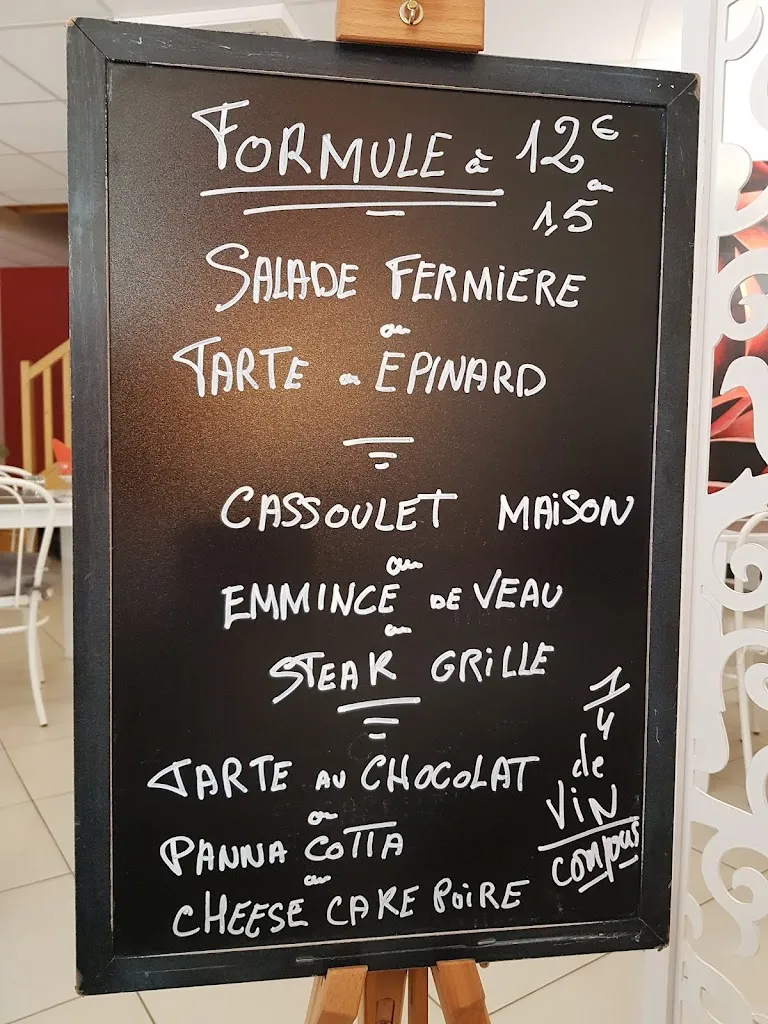 FORMULE à 12€
ou
1,5
SALADE FERMIERE
ou
TARTE au EPINARD
CASSOULET MAISON
ou
EMMINCE DE VEAU
ou
STEAK GRILLE
TARTE AU CHOCOLAT
ou
PANNA COTTA
ou
CHEESE CAKE POIRE
1/4
de
VIN
compris